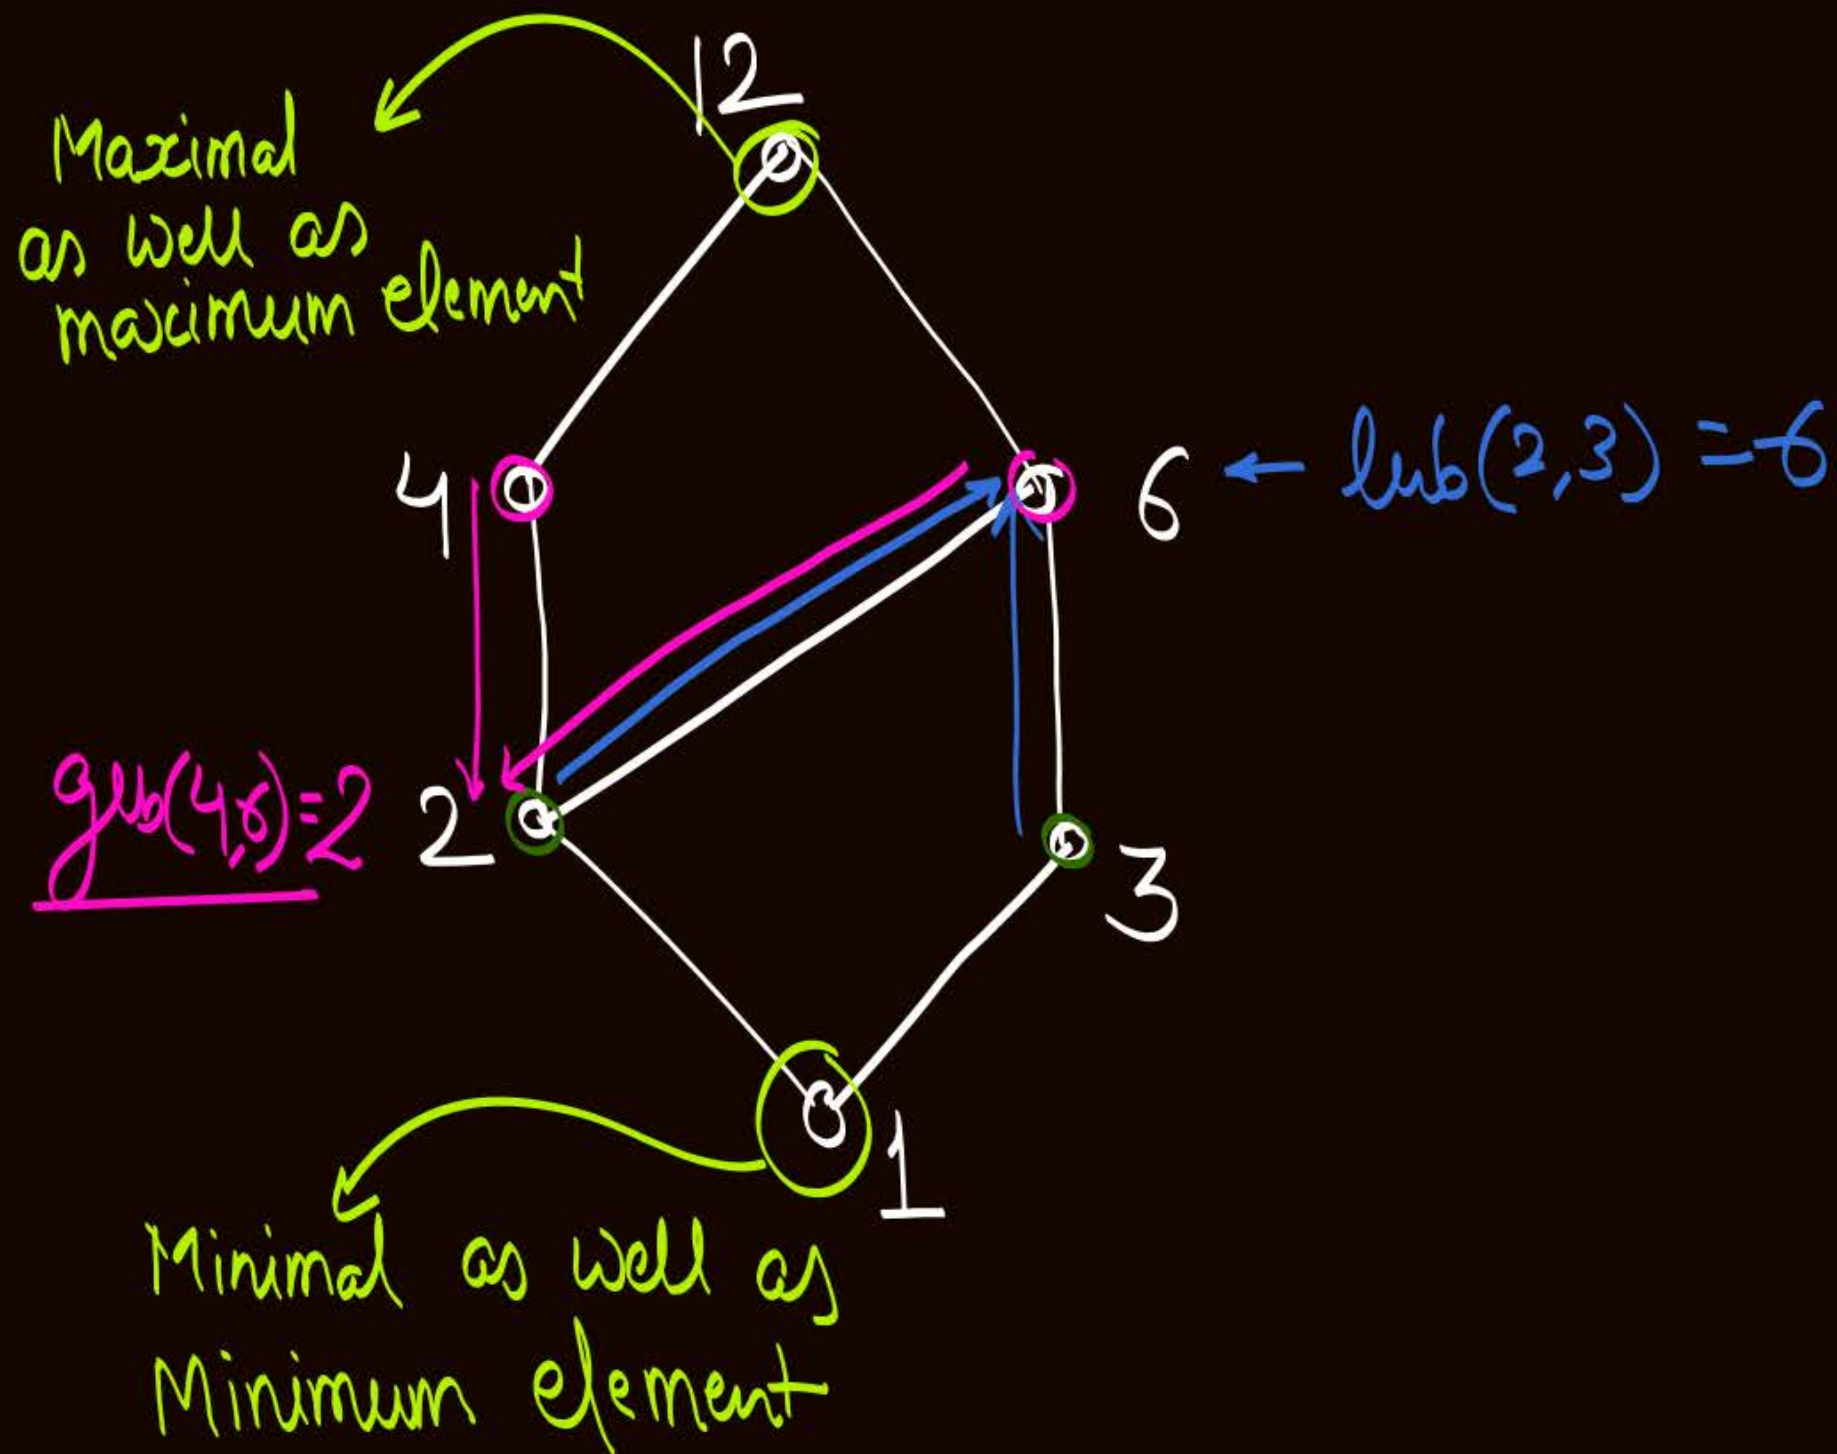 12
Maximal
as well as
maximum element
4
6 ← lub(2,3) = 6
glb(4,6)=2
2
3
1
Minimal as well as
Minimum element